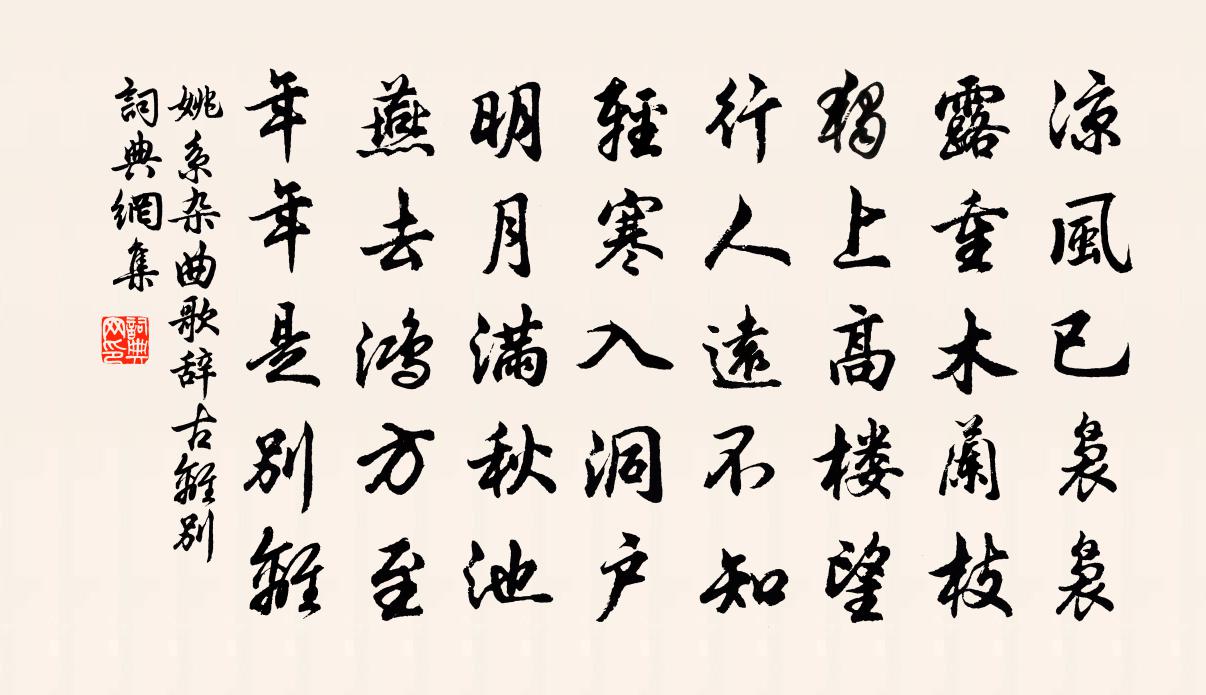 涼風已裊裊
露重木蘭枝
獨上高楼望
行人遠不知
輕寒入洞户
明月滿秋池
燕去鴻方至
年年是別離
姚系杂曲歌辞古離別
詞典網集
詞典網印